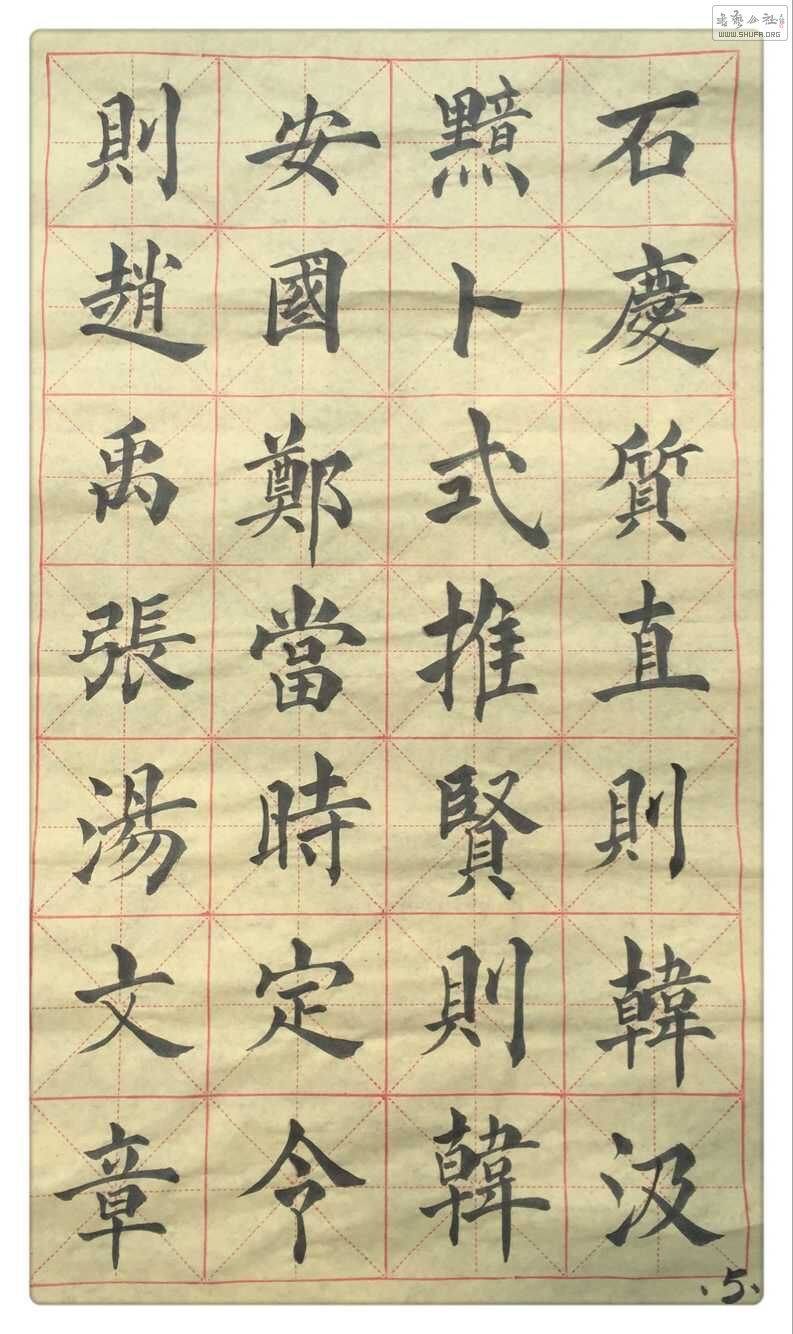 石慶質直則韓汲
黯卜式推賢則韓
安國鄭當時定令
則趙禹張湯文章
5
書藝公社
WWW.SHUFA.ORG